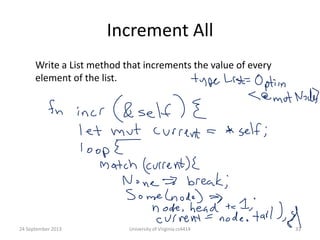 Increment All
Write a List method that increments the value of every
element of the list.
type List = Option
<@mut Node>
fn incr (&self) {
let mut current = *self;
loop {
match (current) {
None => break;
Some(node) =>
node.head += 1;
current = node.tail
24 September 2013
University of Virginia cs4414